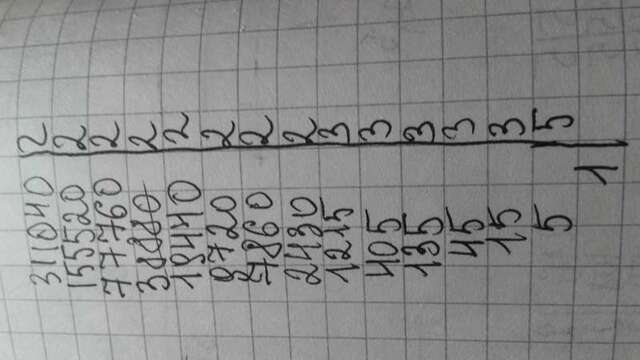 311040 | 2
155520 | 2
77760 | 2
38880 | 2
19440 | 2
9720 | 2
7860 | 2
2430 | 2
1215 | 3
405 | 3
135 | 3
45 | 3
15 | 3
5 | 5
1 |